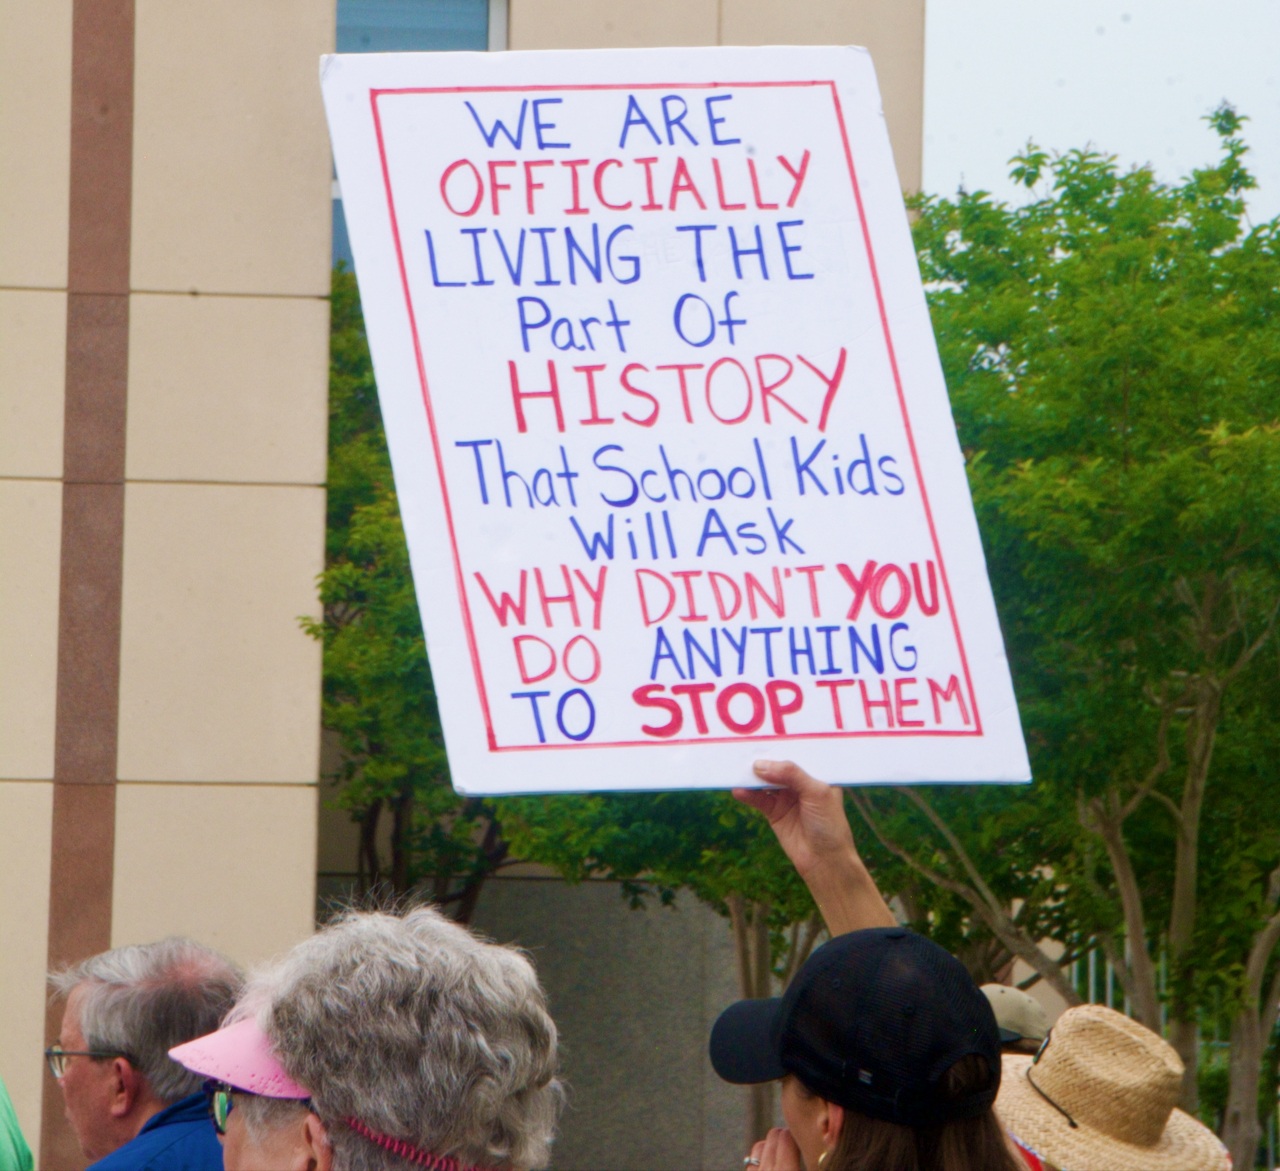 WE ARE
OFFICIALLY
LIVING THE
Part Of
HISTORY
That School Kids
Will Ask
WHY DIDN'T YOU
DO ANYTHING
TO STOP THEM